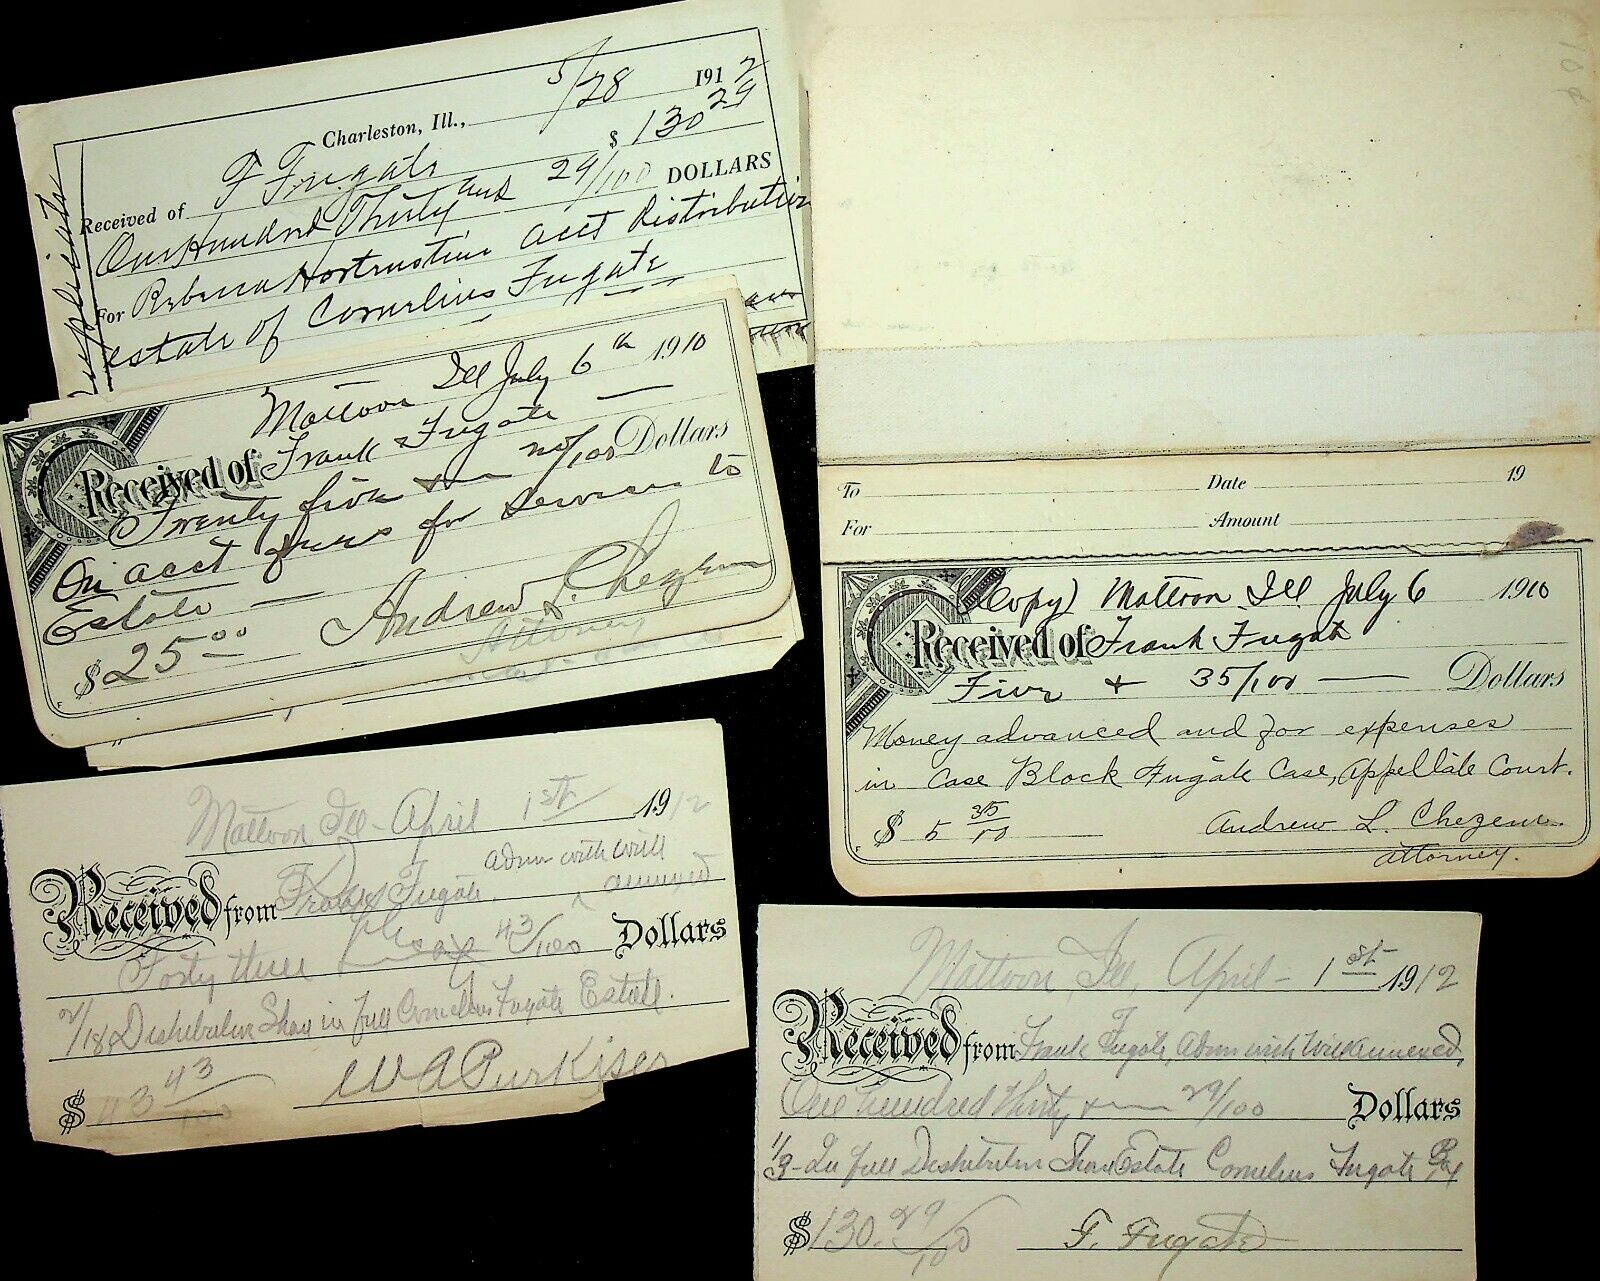 Duplicate
Charleston, Ill., 5/28 1912
Received of F Fugate $ 130 29
One Hundred Thirty and 29/100 DOLLARS
For Rebecca acct Distribution
estate of Cornelius Fugate
Mattoon Ill July 6th 1910
Received of Frank Fugate —
Twenty five + no/100 Dollars
On acct for services to
Estate —
Andrew L. Chezem
$ 25.00
Attorney
To Date 19
For Amount
(Copy) Mattoon, Ill. July 6 1910
Received of Frank Fugate
Five + 35/100 — Dollars
Money advanced and for expenses
in case Block Fugate Case, Appellate Court.
$ 5 35/100 — Andrew L. Chezem
Attorney.
Mattoon Ill - April 1st 1912
Received from Frank Fugate. Admr with will annexed
Forty three 43/100 Dollars
Distributive Share in full Cornelius Fugate Estate.
$ 43 43/100 W A Purkiser
Mattoon, Ill, April - 1st 1912
Received from Frank Fugate, Admr with Will annexed,
One hundred Thirty + 29/100 Dollars
1/3 - In full Distributive Share Estate Cornelius Fugate
$ 130. 29/100 F. Fugate